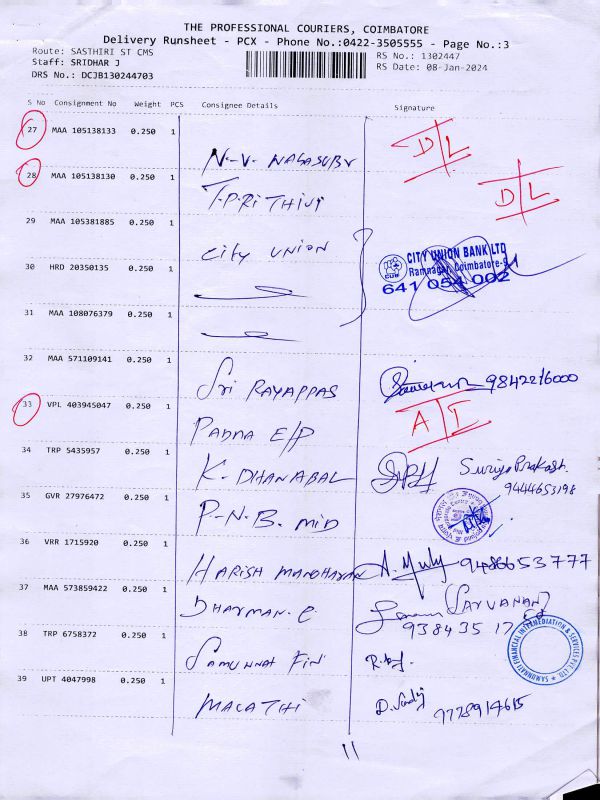 THE PROFESSIONAL COURIERS, COIMBATORE
Delivery Runsheet - PCX - Phone No.:0422-3505555 - Page No.:3
Route: SASTHIRI ST CMS
RS No.: 1302447
Staff: SRIDHAR J
RS Date: 08-Jan-2024
DRS No.: DCJB130244703
S No Consignment No Weight PCS Consignee Details Signature
27 MAA 105138133 0.250 1
N.V. NAGASUBV
D L
28 MAA 105138130 0.250 1
T.P.RITHIVI
D L
29 MAA 105381885 0.250 1
CITY UNION
CITY UNION BANK LTD
Ramnagar, Coimbatore-9
641 054 002
30 HRD 20350135 0.250 1
31 MAA 108076379 0.250 1
32 MAA 571109141 0.250 1
Sri RAYAPPAS
9842216000
33 VPL 403945047 0.250 1
PADMA E/P
A I
34 TRP 5435957 0.250 1
K. DHANABAL
Suriya Prakash.
9444653198
35 GVR 27976472 0.250 1
P.N.B. MID
36 VRR 1715920 0.250 1
HARISH MANOHARAN
9486653777
37 MAA 573859422 0.250 1
DHARMAN. C
(SARVANAN)
938435 17
38 TRP 6758372 0.250 1
SAMUNNAT FIN
SAMUNNATI FINANCIAL INTERMEDIATION & SERVICES PVT LTD
39 UPT 4047998 0.250 1
MALATHI
9778914615
11